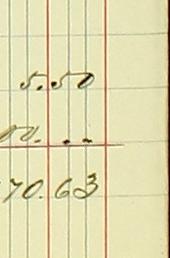 5.50
00. --
70.63